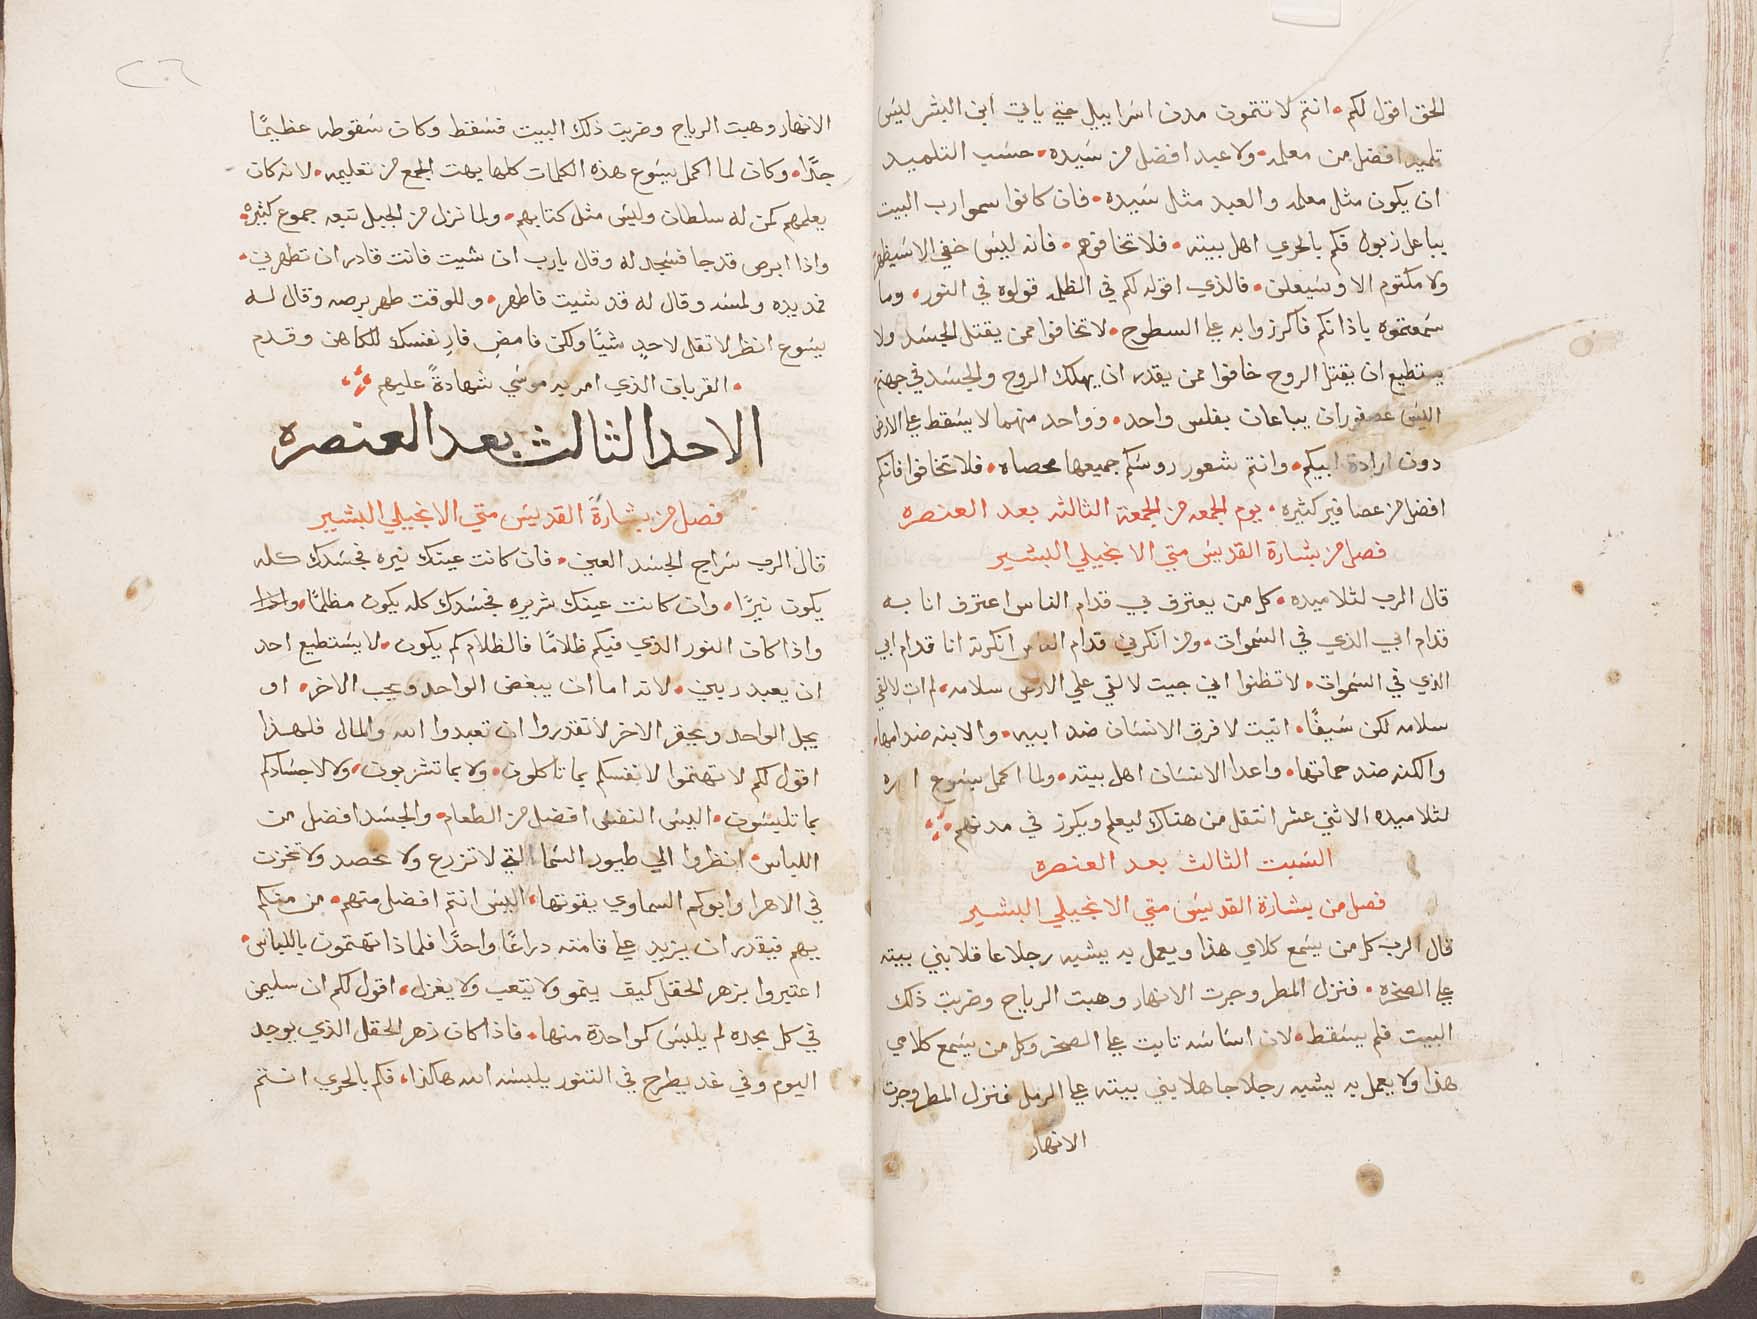 الحق اقول لكم • انتم لا تتمون مدن اسراييل حتي ياتي ابن البشر ليس
تلميد افضل من معلمه • ولا عبد افضل من سيده • حسب التلميد
ان يكون مثل معلمه والعبد مثل سيده • فان كانوا سموا رب البيت
بباعل زبول فكم بالحري اهل بيته • فلا تخافوهم • فانه ليس خفي الا سيظهر
ولا مكتوم الا وسيعلن • فالذي اقوله لكم في الظلمه قولوه في النور • وما
سمعتموه باذانكم فاكرزوا به علي السطوح • لا تخافوا ممن يقتل الجسد ولا
يستطيع ان يقتل الروح خافوا ممن يقدر ان يهلك الروح والجسد في جهنم
اليس عصفوران يباعان بفلس واحد • وواحد منهما لا يسقط علي الارض
دون ارادة ابيكم • وانتم شعور روسكم جميعها محصاه • فلا تخافوا فانكم
افضل من عصافير كثيره • يوم الجمعه من الجمعة الثالثه بعد العنصره
فصل من بشارة القديس متي الانجيلي البشير
قال الرب لتلاميده • كل من يعترف بي قدام الناس اعترف انا به
قدام ابي الذي في السموات • ومن انكرني قدام الناس انكرته انا قدام ابي
الذي في السموات • لا تظنوا اني جيت لالقي علي الارض سلامه • لم ات لالقي
سلامه لكن سيفًا • اتيت لافرق الانسان ضد ابيه • والابنه ضد امها •
والكنه ضد حماتها • واعدا الانسان اهل بيته • ولما اكمل يسوع امره
لتلاميده الاثني عشر انتقل من هناك ليعلم ويكرز في مدنهم
السبت الثالث بعد العنصره
فصل من بشارة القديس متي الانجيلي البشير
قال الرب كل من يسمع كلامي هذا ويعمل به يشبه رجلا عاقلا بني بيته
علي الصخره • فنزل المطر وجرت الانهار وهبت الرياح وضربت ذلك
البيت فلم يسقط • لان اساسه ثابت علي الصخر وكل من يسمع كلامي
هذا ولا يعمل به يشبه رجلا جاهلا بني بيته علي الرمل فنزل المطر وجرت
الانهار
٢٠٦
الانهار وهبت الرياح وضربت ذلك البيت فسقط وكان سقوطه عظيمًا
جدًا • وكان لما اكمل يسوع هذه الكلمات كلها بهت الجمع من تعليمه • لانه كان
يعلمهم كمن له سلطان وليس مثل كتابهم • ولما نزل من الجبل تبعه جموع كثيره •
واذا ابرص قد جا فسجد له وقال يارب ان شيت فانت قادر ان تطهرني •
فمد يده ولمسه وقال له قد شيت فاطهر • وللوقت طهر برصه وقال له
يسوع انظر لا تقل لاحدٍ شيًا ولكن فامضِ فارِ نفسك للكاهن وقدم
• القربان الذي امر به موسي شهادةً عليهم
الاحد الثالث بعد العنصره
فصل من بشارة القديس متي الانجيلي البشير
قال الرب سراج الجسد العين • فان كانت عينك نيره فجسدك كله
يكون نيرًا • وان كانت عينك شريره فجسدك كله يكون مظلمًا • واذا
واذا كان النور الذي فيكم ظلامًا فالظلام كم يكون • لا يستطيع احد
ان يعبد ربين • لانه اما ان يبغض الواحد ويحب الاخر • او
يجل الواحد ويحقر الاخر لا تقدروا ان تعبدوا الله والمال فلهذا
اقول لكم لا تهتموا لانفسكم بما تاكلون • ولا بما تشربون • ولا لاجسادكم
بما تلبسون • اليس النفس افضل من الطعام • والجسد افضل من
اللباس • انظروا الي طيور السما التي لا تزرع ولا تحصد ولا تخزن
في الاهرا وابوكم السماوي يقوتها • اليس انتم افضل منهم • من منكم
يهم فيقدر ان يزيد علي قامته دراعًا واحدًا فلماذا تهتمون باللباس •
اعتبروا بزهر الحقل كيف ينمو ولا يتعب ولا يغزل • اقول لكم ان سليمن
في كل مجده لم يلبس كواحدة منها • فاذا كان زهر الحقل الذي يوجد
اليوم وفي غد يطرح في التنور يلبسه الله هكذا • فكم بالحري انتم